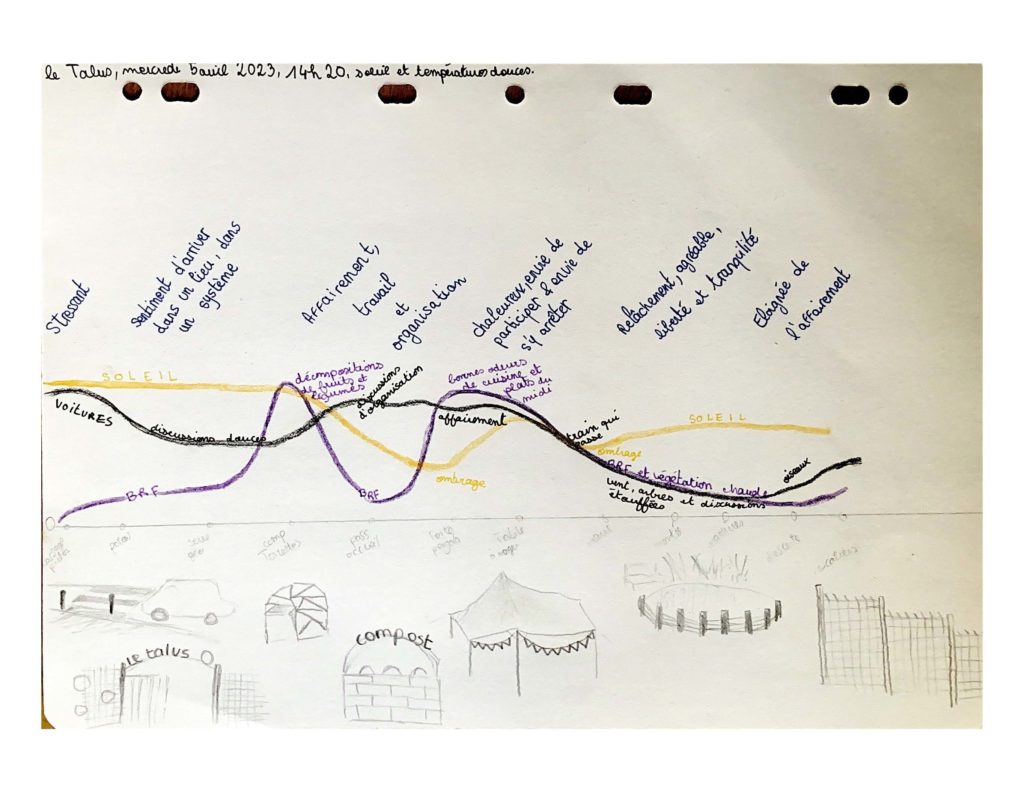 le Talus, mercredi 5 avril 2023, 14h 20, soleil et températures douces.
Stressant
sentiment d'arriver
dans un lieu, dans
un système
Affairement,
travail
et
organisation
chaleureux, envie de
participer & envie de
s'y arrêter
Relâchement, agréable,
liberté et tranquilité
Eloignée de
l'affairement
SOLEIL
VOITURES
discussions douces
BRF
décompositions
de fruits et
légumes
discussions
d'organisation
BRF
ombrage
bonnes odeurs
de cuisine et
plats du
midi
affairement
train qui
passe
ombrage
SOLEIL
BRF et végétation chaude
vent, arbres et discussions
étouffées
oiseaux
comp
Toilettes
Le talus
compost